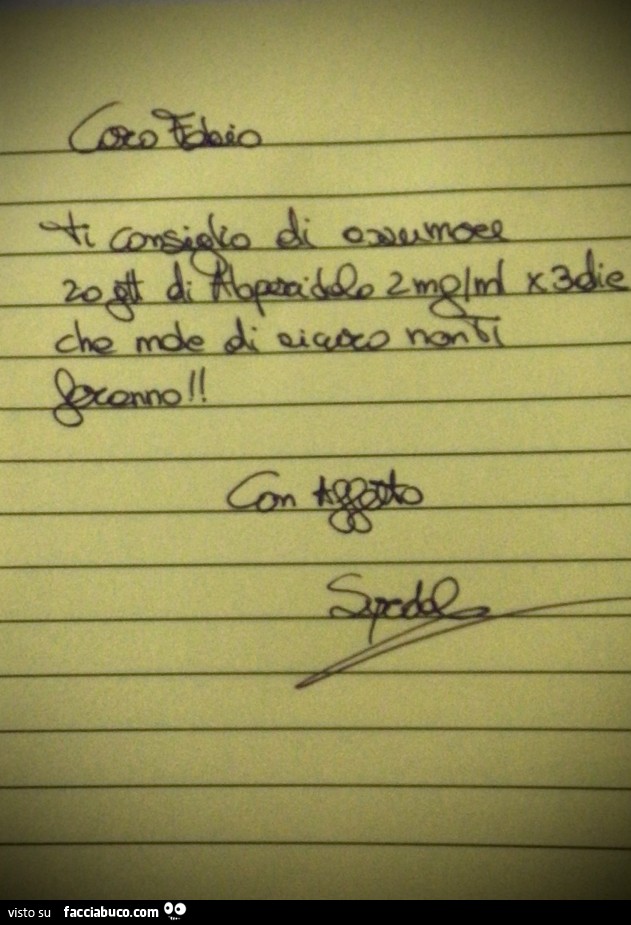 Caro Fabio
ti consiglio di assumere
20 gtt di Aloperidolo 2mg/ml x 3 die
che male di sicuro non ti
faranno!!
Con Affetto
visto su facciabuco.com